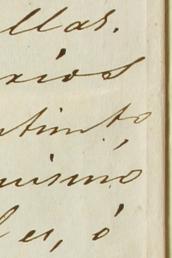 llas.
rios
ntinto
mismo
les, ó